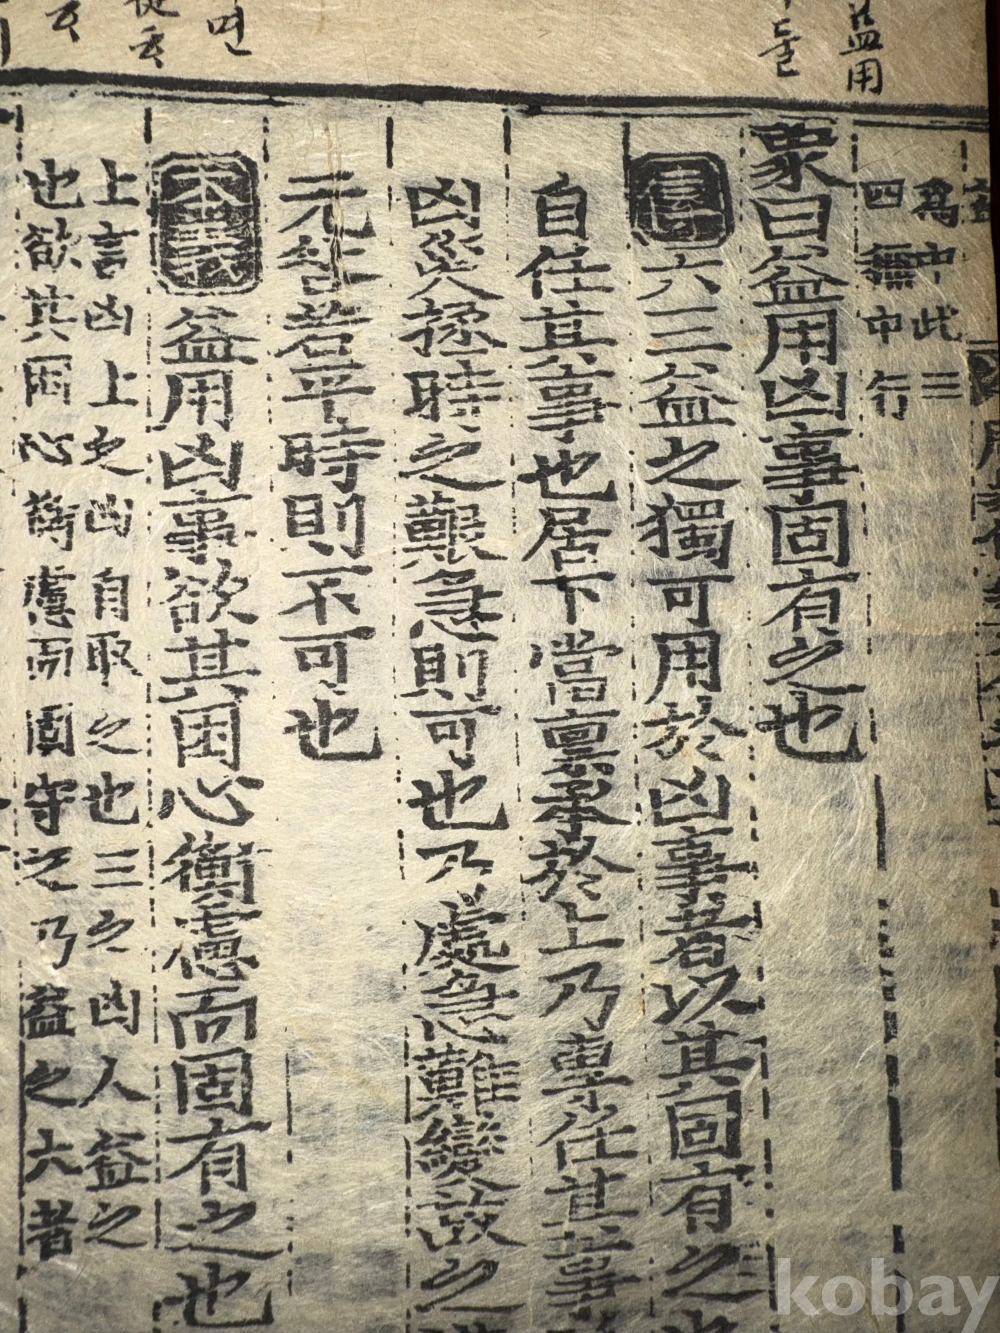 益用
爲中此三
四無中行
象曰益用凶事固有之也
傳六三益之獨可用於凶事者以其固有之也
自任其事也居下當稟承於上乃專任其事
凶災拯時之艱急則可也乃處急難變故之
无咎若平時則不可也
本義益用凶事欲其困心衡慮而固有之也
上言凶上之凶自取之也三之凶人益之
也欲其困心衡慮而固守之乃益之六者
kobay